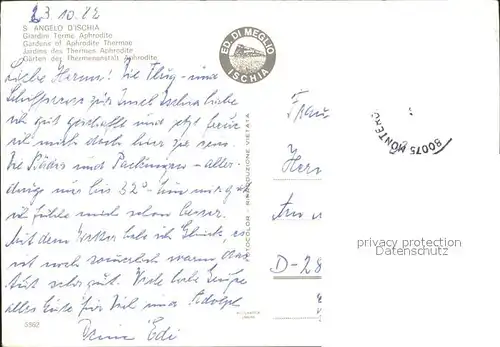 23.10.82
S. ANGELO D'ISCHIA
Giardini Terme Aphrodite
Gardens of Aphrodite Thermae
Jardins des Thermes Aphrodite
Gärten der Thermenanstalt Aphrodite
ED. DI MEGLIO
ISCHIA
Liebe Herma! Die Flug- und
Schiffsreise zur Insel Ischia habe
ich gut geschafft und jetzt freue
ich mich doch hier zu sein.
Die Bäder und Packungen - aller-
dings nur bis 32° -
ich fühle mich schon besser.
Mit dem Wetter habe ich Glück, es
ist noch sommerlich warm das
Viele liebe Grüße
alles Gute für Dich und Adolph
Deine Edi
FOTOCOLOR - RIPRODUZIONE VIETATA
Frau
Herm
D-28
80075 MONTERO
privacy protection
Datenschutz
5362